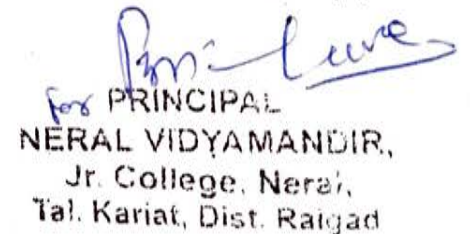 for PRINCIPAL
NERAL VIDYAMANDIR,
Jr. College, Neral,
Tal. Karjat, Dist. Raigad